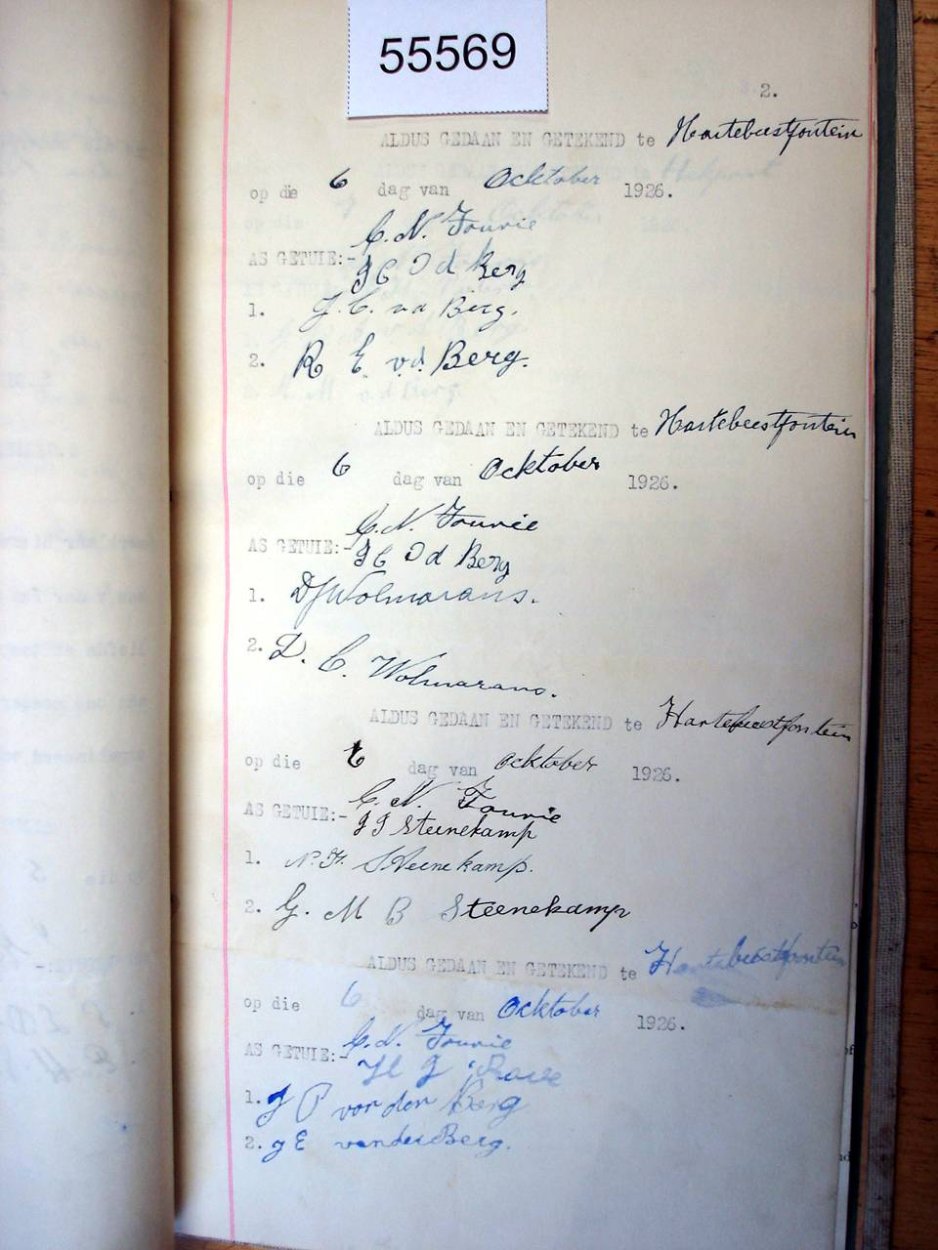 55569
2.
ALDUS GEDAAN EN GETEKEND te Hartebeestfontein
op die 6 dag van Ocktober 1926.
C. N. Fourie
AS GETUIE:-
J C v d Berg
1. J. C. v d Berg.
2. R E. v.d. Berg.
ALDUS GEDAAN EN GETEKEND te Hartebeestfontein
op die 6 dag van Ocktober 1926.
C. N. Fourie
AS GETUIE:-
J C v d Berg
1. D J Wolmarans.
2. D. C. Wolmarans.
ALDUS GEDAAN EN GETEKEND te Hartebeestfontein
op die 6 dag van Ocktober 1926.
C. N. Fourie
AS GETUIE:-
J J Steenekamp
1. N. F. Steenekamp.
2. G. M B Steenekamp
ALDUS GEDAAN EN GETEKEND te Hartebeestfontein
op die 6 dag van Ocktober 1926.
C. N. Fourie
AS GETUIE:-
H J
1. J P van der Berg
2. J E van der Berg.